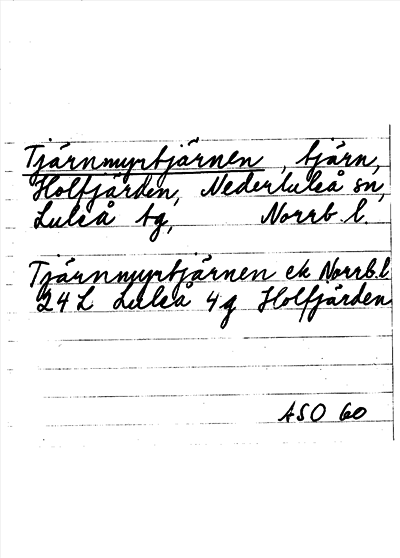 Tjärnmyrtjärnen, tjärn,
Holfjärden, Nederluleå sn,
Luleå tg, Norrb. l.
Tjärnmyrtjärnen ek Norrb. l
24 L Luleå 4 g Holfjärden
ASO 60